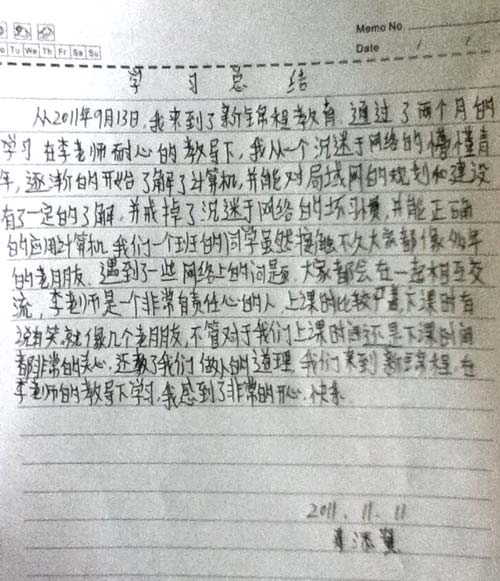 Memo No.
Tu We Th Fr Sa Su
Date / /
学 习 总 结
从2011年9月13日，我来到了新锦程教育，通过了两个月的
学习 在李老师耐心的教导下，我从一个沉迷于网络的懵懂青
年，逐渐的开始了解了计算机，并能对局域网的规划和建设
有了一定的了解，并戒掉了沉迷于网络的坏习惯，并能正确
的应用计算机 我们一个班的同学虽然接触不久大家都像多年
的老朋友，遇到了一些网络上的问题，大家都会在一起相互交
流，李老师是一个非常有责任心的人，上课时比较严肃，下课时有
说有笑就像几个老朋友，不管对于我们上课时间还是下课时间
都非常的关心，还教了我们做人的道理，我们来到新锦程，在
李老师的教导下学习，我感到了非常的开心，快乐
2011. 11. 11